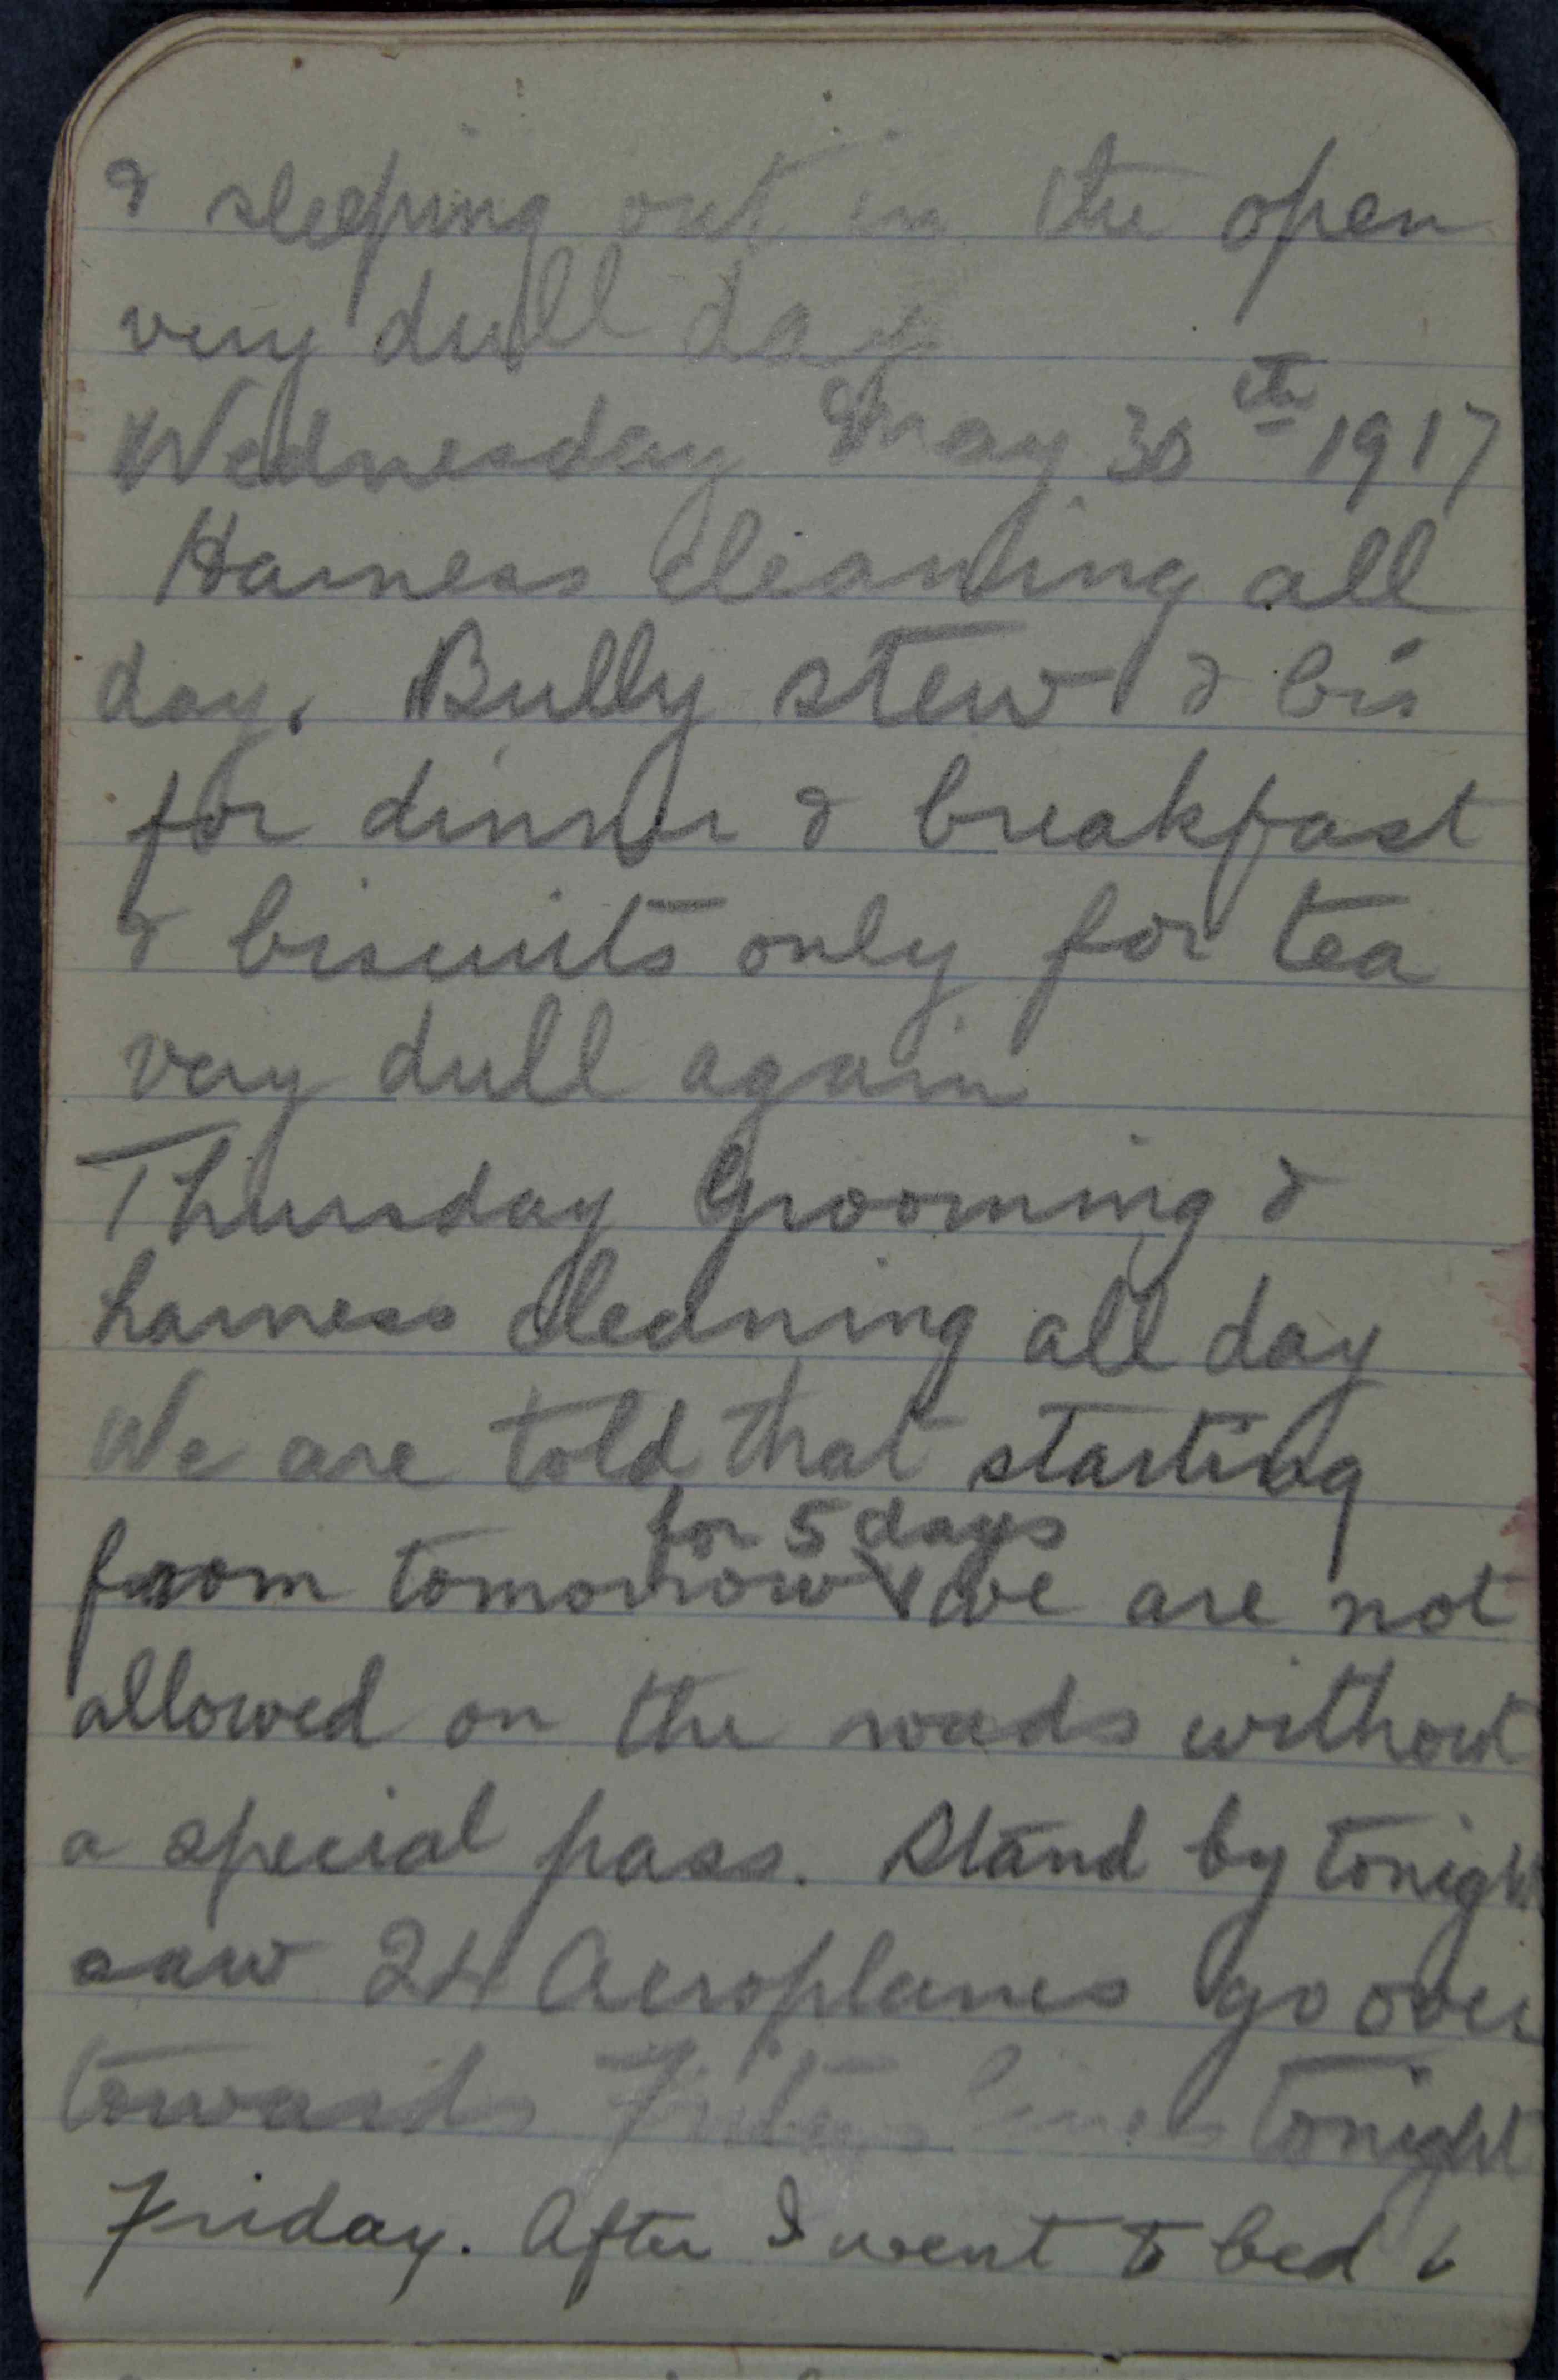 & sleeping out in the open
very dull day
Wednesday May 30th 1917
Harness cleaning all
day. Bully stew & bis
for dinner & breakfast
& biscuits only for tea
very dull again
Thursday Grooming &
harness cleaning all day
We are told that starting
for 5 days
from tomorrow we are not
allowed on the roads without
a special pass. Stand by tonight
saw 24 Aeroplanes go over
towards Fritz lines tonight
Friday. After I went to bed